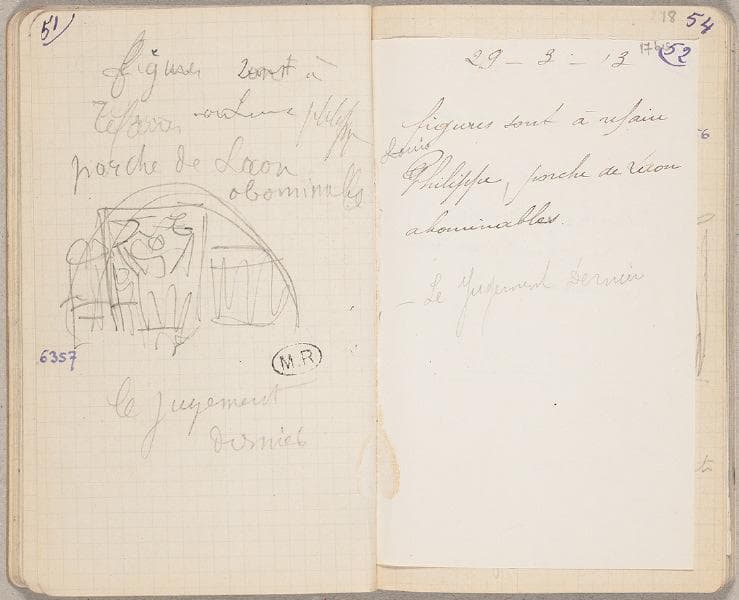 51
figures sont à
refaire
porche de Laon
abominables
6357
M.R
le jugement
dernier
18
54
17bis
52
29 - 3 - 13
figures sont à refaire
Philippe, porche de Laon
abominables.
- Le Jugement Dernier